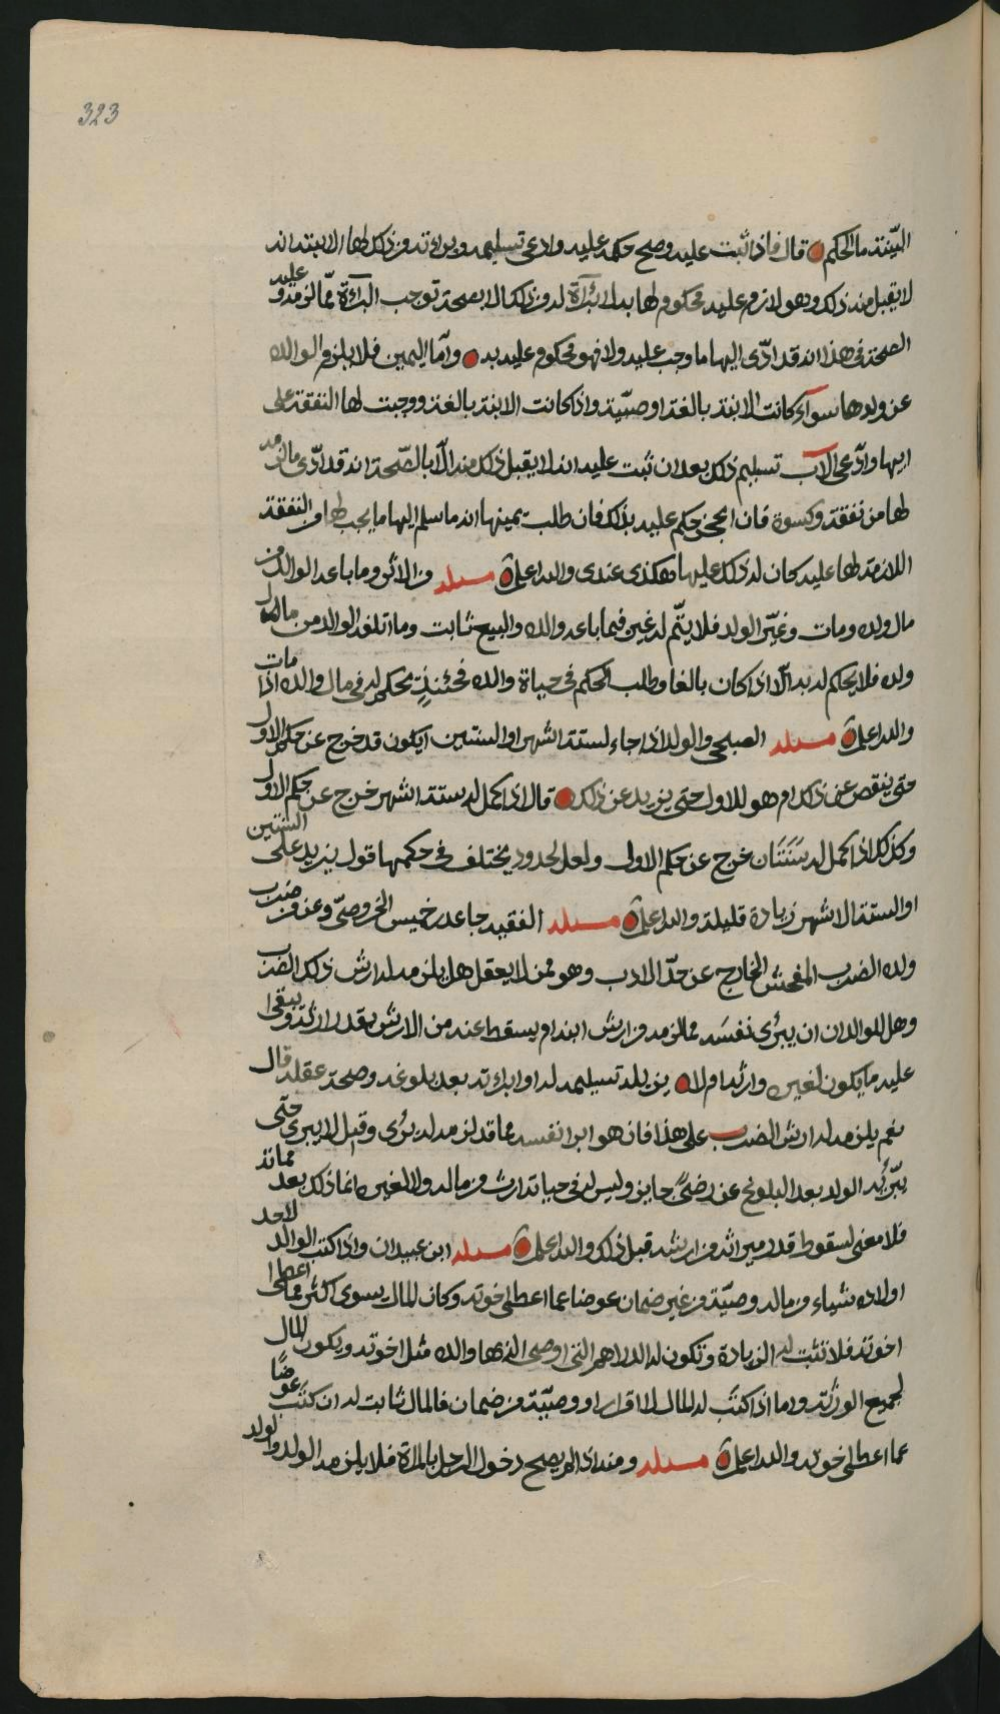 323
البيّنة ما الحكم قال فاذا ثبت عليه وصح حكمه عليه وادعى تسليمه وبراءته من ذلك لها اي لابنته انه
لا يقبل منه ذلك وهو لازم عليه محكوم لها به لا براءة له من ذلك الا بصحة توجب البرآءة ممّا لزمه عليه و
الصحة في هذا انه قد ادّى اليها ما وجب عليه والا فهو محكوم عليه به وامّا اليمين فلا يلزم الوالد
عن ولدها سوآء كانت الابنة بالغة او صبيّة واذا كانت الابنة بالغة ووجبت لها النفقة على
ابيها وادّعى الاب تسليم ذلك بعد ان ثبت عليه انه لا يقبل ذلك منه الّا بالصّحة انه قد ادّى ما لزمه
لها من نفقة وكسوة فان اعجز حكم عليه بذلك فان طلب يمينها انه ما سلم اليها ما يجب لها من النفقة
اللازمة لها عليه كان له ذلك عليها هكذى عندي والله اعلم مسئلة من الاثر وما باعه الوالد من
مال ولده ومات وغيّر الولد فلا يتّم له غير فيما باعه والده والبيع ثابت وما اتلفه الوالد من مال
ولده فلا يحكم له به الّا اذا كان بالغا وطلب الحكم في حياة والده فحينئذٍ يحكم له في مال والده اذا مات
والله اعلم مسئلة الصبحي والولد اذا جاء لستة اشهر او السنتين ايكون قد خرج عن حكم الاول
حتى ينقص عن ذلك ام هو للاول حتى يزيد عن ذلك قال اذا كمل له ستة اشهر خرج عن حكم الاول
وكذلك اذا كمل له سَنَتَان خرج عن حكم الاول ولعل لحدود يختلف في حكمها قول يزيد على السنتين
او الستة الاشهر زيادة قليلة والله اعلم مسئلة الفقيه جاعد بن خميس الخروصيّ وعن من ضرب
ولده الضرب المفحش الخارج عن حدّ الادب وهو ممن لا يعقل هل يلزمه له ارش ذلك الضرب
وهل للوالد ان يبرئ نفسَه مما لزمه من ارش ابنه ام يسقط عنه من الارش بقدر ارثه ويبقى
عليه ما يكون لغيره وارثه ام لا يلزمه تسليمه له او ابراته بعد بلوغه وصحة عقله قال
نعم يلزمه له ارش الضرب على هذا فان هو ابرا نفسه مما قد لزمه له برئ وقيل لا يبرى حتى
يبّرئه الولد بعد البلوغ عن رضىً جايز وليس له في حياته ارث من ماله ولا لغيره انما ذلك بعد مماته
فلا معنى لسقوط قدر ميراثه من ارشه قبل ذلك والله اعلم مسئلة ابن عبيدان واذا كتب الوالد لاحد
اولاده شياء من ماله وصيّة من غير ضمان عوضا عما اعطى اخوته وكان المال يسوى اكثر مما اعطى
اخوته فلا تثبت له الزيادة وتكون له الدراهم التي اوصى له بها والده مثل اخوته ويكون المال
لجميع الورثة وما اذا كتب له المال اقرارا او وصيّة من ضمان فالمال ثابت له ان كتب عوضًا
عما اعطى اخوته والله اعلم مسئلة ومنه اذا لم يصح دخول الرجل بالمراة فلا يلزمه الولد والولد